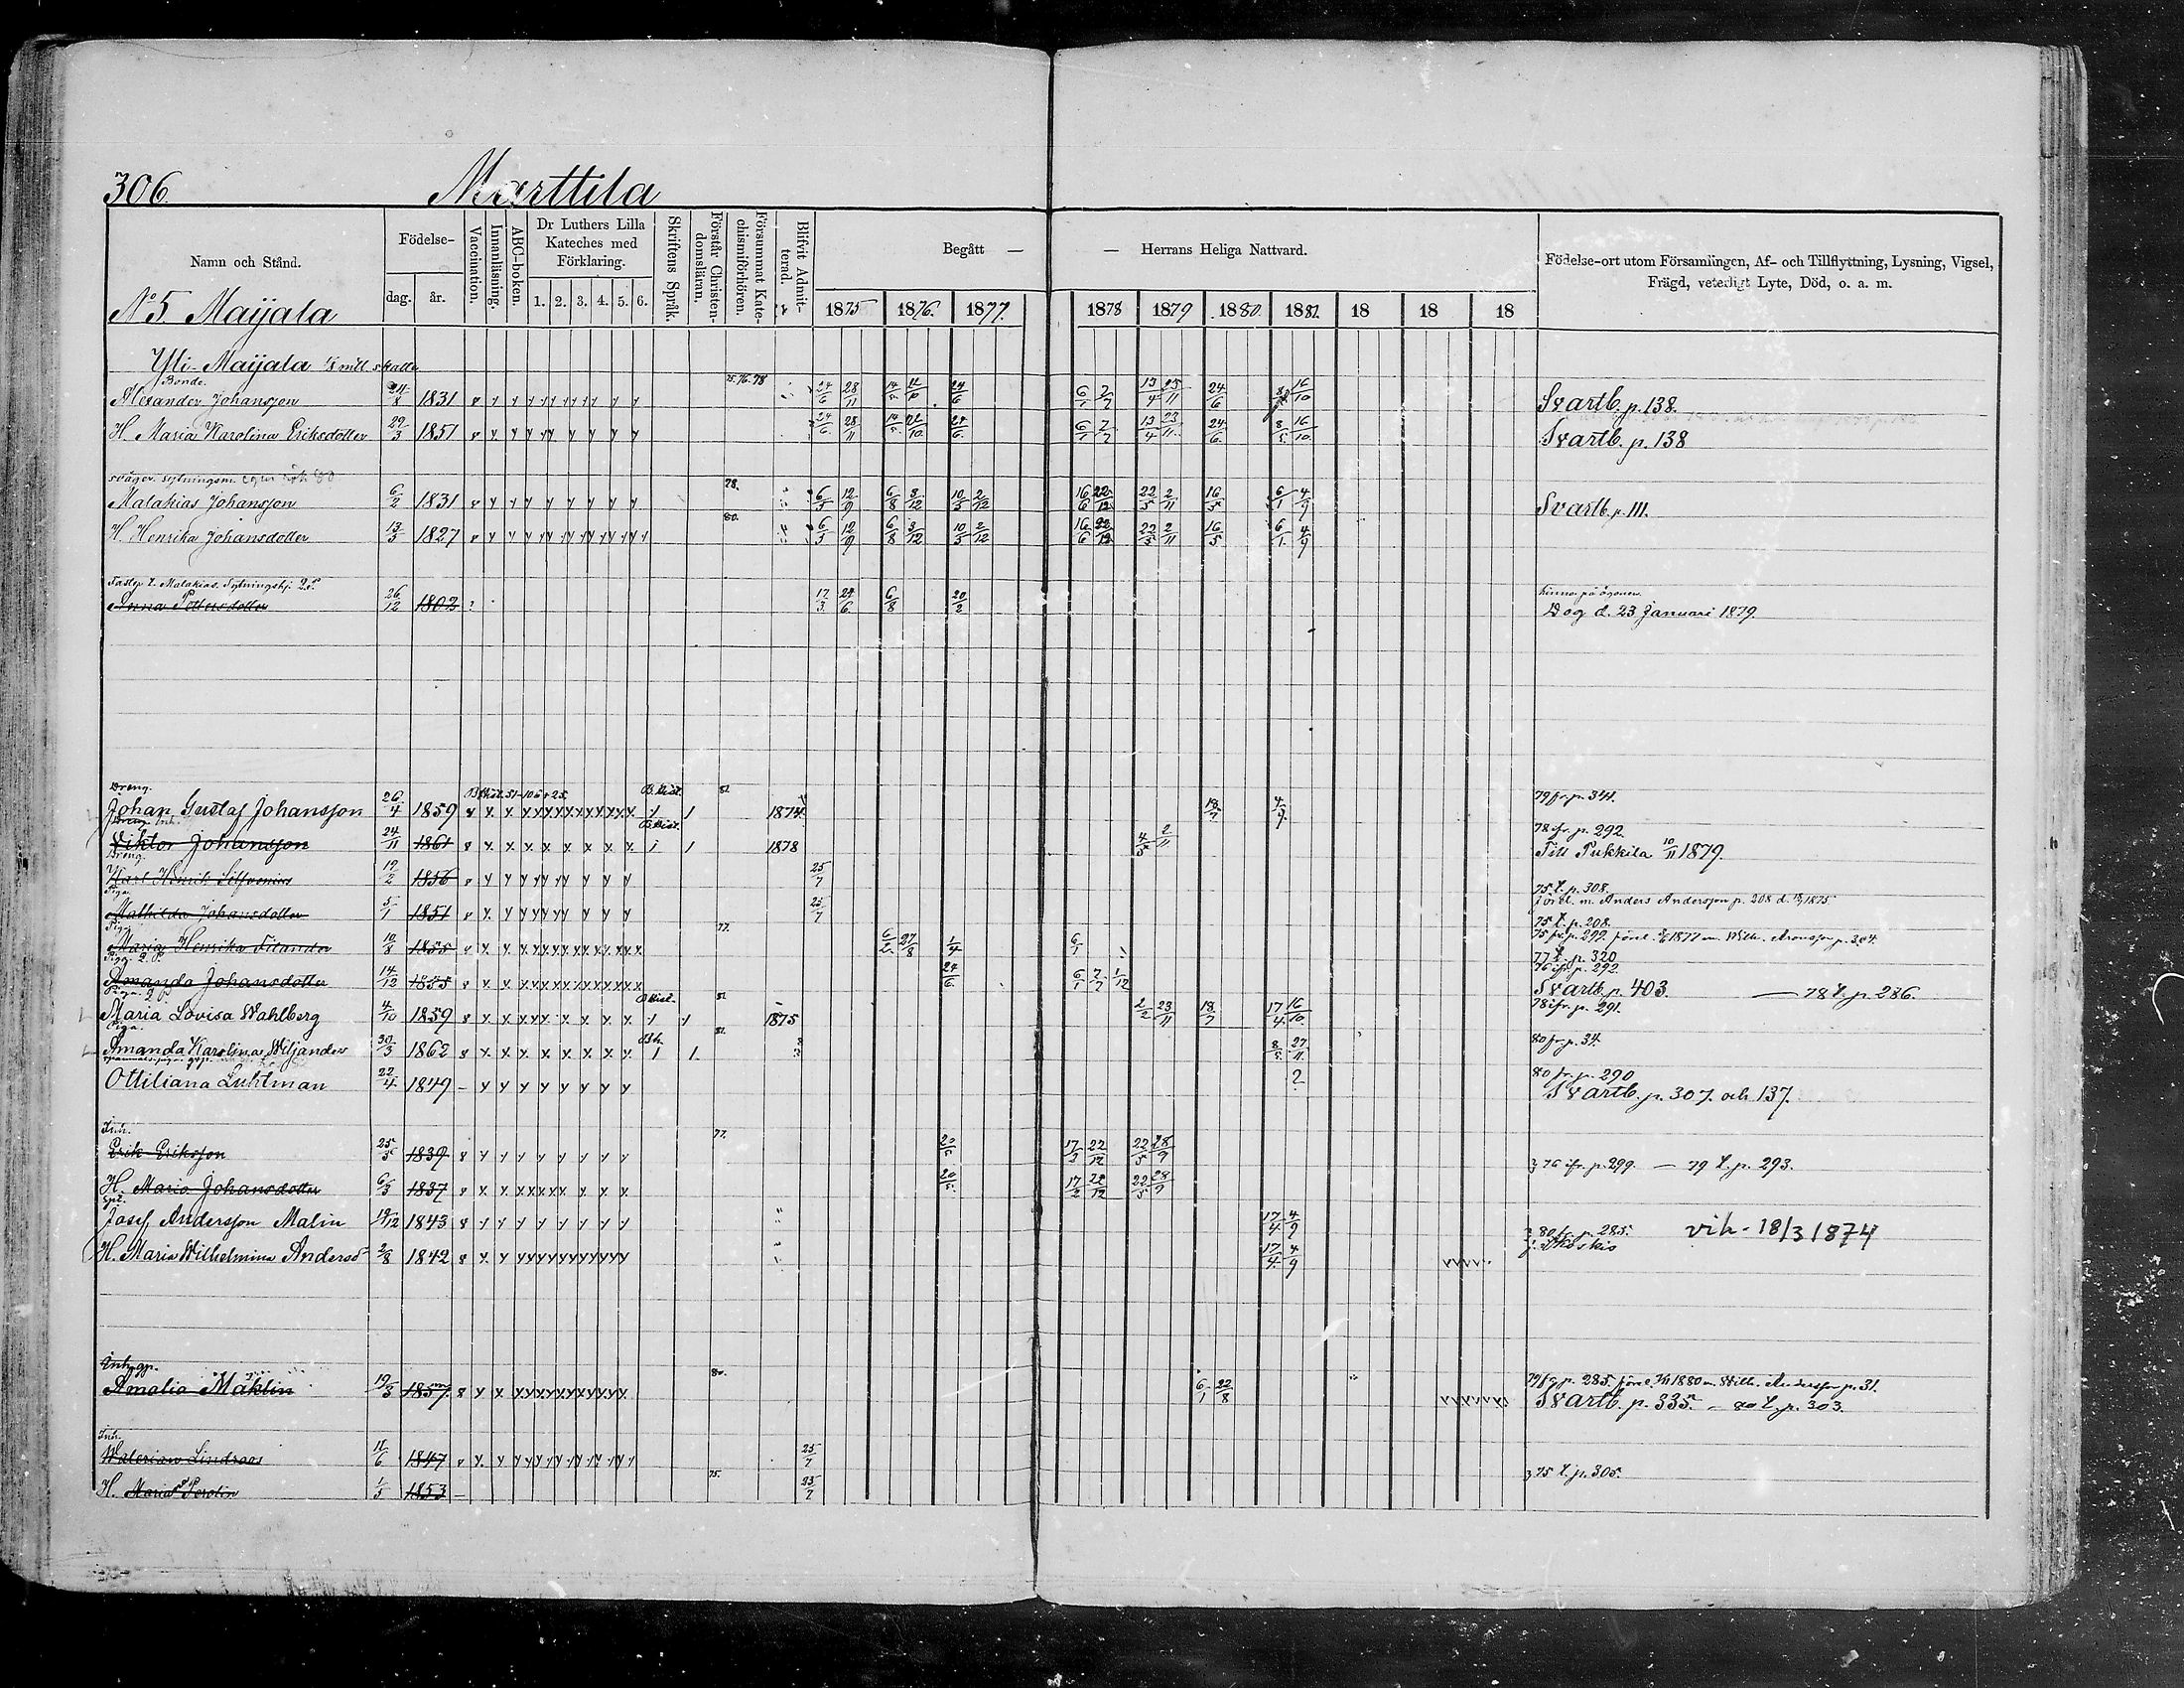 306.
Marttila
Namn och Stånd.
Födelse-
dag.
år.
Vaccination.
Innanläsning.
ABC-boken.
Dr Luthers Lilla
Kateches med
Förklaring.
1. 2. 3. 4. 5. 6.
Skriftens Språk.
Förstår Christen-
domsläran.
Försummat Kate-
chismiförhören.
Blifvit Admit-
terad.
Begått — — Herrans Heliga Nattvard.
1875 1876. 1877. 1878 1879 1880. 1881. 18 18 18
Födelse-ort utom Församlingen, Af- och Tillflyttning, Lysning, Vigsel,
Frägd, veterligt Lyte, Död, o. a. m.
No 5. Maijala
Yli-Maijala
Bonde.
Alexander Johansson 24/8 1831 75.76.78 24/6 28/11 24/6 6/1 7/7 24/6 16/10 Svartb. p. 138.
H. Maria Karolina Eriksdotter 29/3 1851 24/6 28/11 24/6 6/1 7/7 13/4 23/11 24/6 8/5 16/10 Svartb. p. 138
Malakias Johansson 6/2 1831 78. 6/5 12/9 6/8 3/12 10/3 2/12 16/6 22/12 22/5 2/11 16/5 6/1 4/9 Svartb. p. 111.
H. Henrika Johansdotter 13/3 1827 80. 6/5 12/9 6/8 3/12 10/3 2/12 16/6 22/12 22/5 2/11 16/5 6/1 4/9
Anna Pettersdotter 26/12 1802 17/3 24/6 6/8 20/2
Dog d. 23 Januari 1879.
Dreng.
Johan Gustaf Johansson 26/4 1859 1874 18/7 4/9 79 fr. p. 341.
Viktor Johansson 24/11 1861 1878 4/5 2/11 78 ifr. p. 292.
Till Pukkila 10/11 1879.
Dreng.
Karl Henrik Silfvenius 19/2 1856 25/7
75 t. p. 308.
Piga.
Mathilda Johansdotter 5/1 1851 25/7 förel. m. Anders Andersson p. 208
75 t. p. 208.
Piga.
Maria Henrika Filander 10/8 1855 77. 6/2 27/8 1/4 6/1 75 fr. p. 299.
77 t. p. 320
Amanda Johansdotter 14/12 1855 24/6 6/1 7/7 1/12 76 ifr. p. 292.
Svartb. p. 403. — 78 t. p. 286.
Maria Lovisa Wahlberg 4/10 1859 81 1875 2/2 23/11 18/7 17/4 16/10 78 ifr. p. 291.
Piga.
Amanda Karolina Wiljander 30/3 1862 81. 8/5 27/11 80 fr. p. 34.
Ottiliana Luhtman 22/4 1849 – 2 80 fr. p. 290
Svartb. p. 307. och 137.
Inh.
Erik Eriksson 25/5 1839 77. 20/5 17/2 22/12 22/5 28/9
76 ifr. p. 299. — 79 t. p. 293.
H. Maria Johansdotter 6/3 1837 20/5 17/2 22/12 22/5 28/9
Josef Andersson Malin 19/12 1843 17/4 4/9 80 fr. p. 285. vih - 18/3 1874
H. Maria Wilhelmina Andersd 2/8 1842 17/4 4/9
Amalia Mäklin 19/3 1857 80. 6/1 22/8 79 fr. p. 285. förel. 1880 m. Wilh. Andersson p. 31.
Svartb. p. 335. – 80 t. p. 303.
Inh.
Walerian Lindroos 11/6 1847 25/7
75 t. p. 305.
H. Maria Perolin 1/5 1853 – 75. 25/7